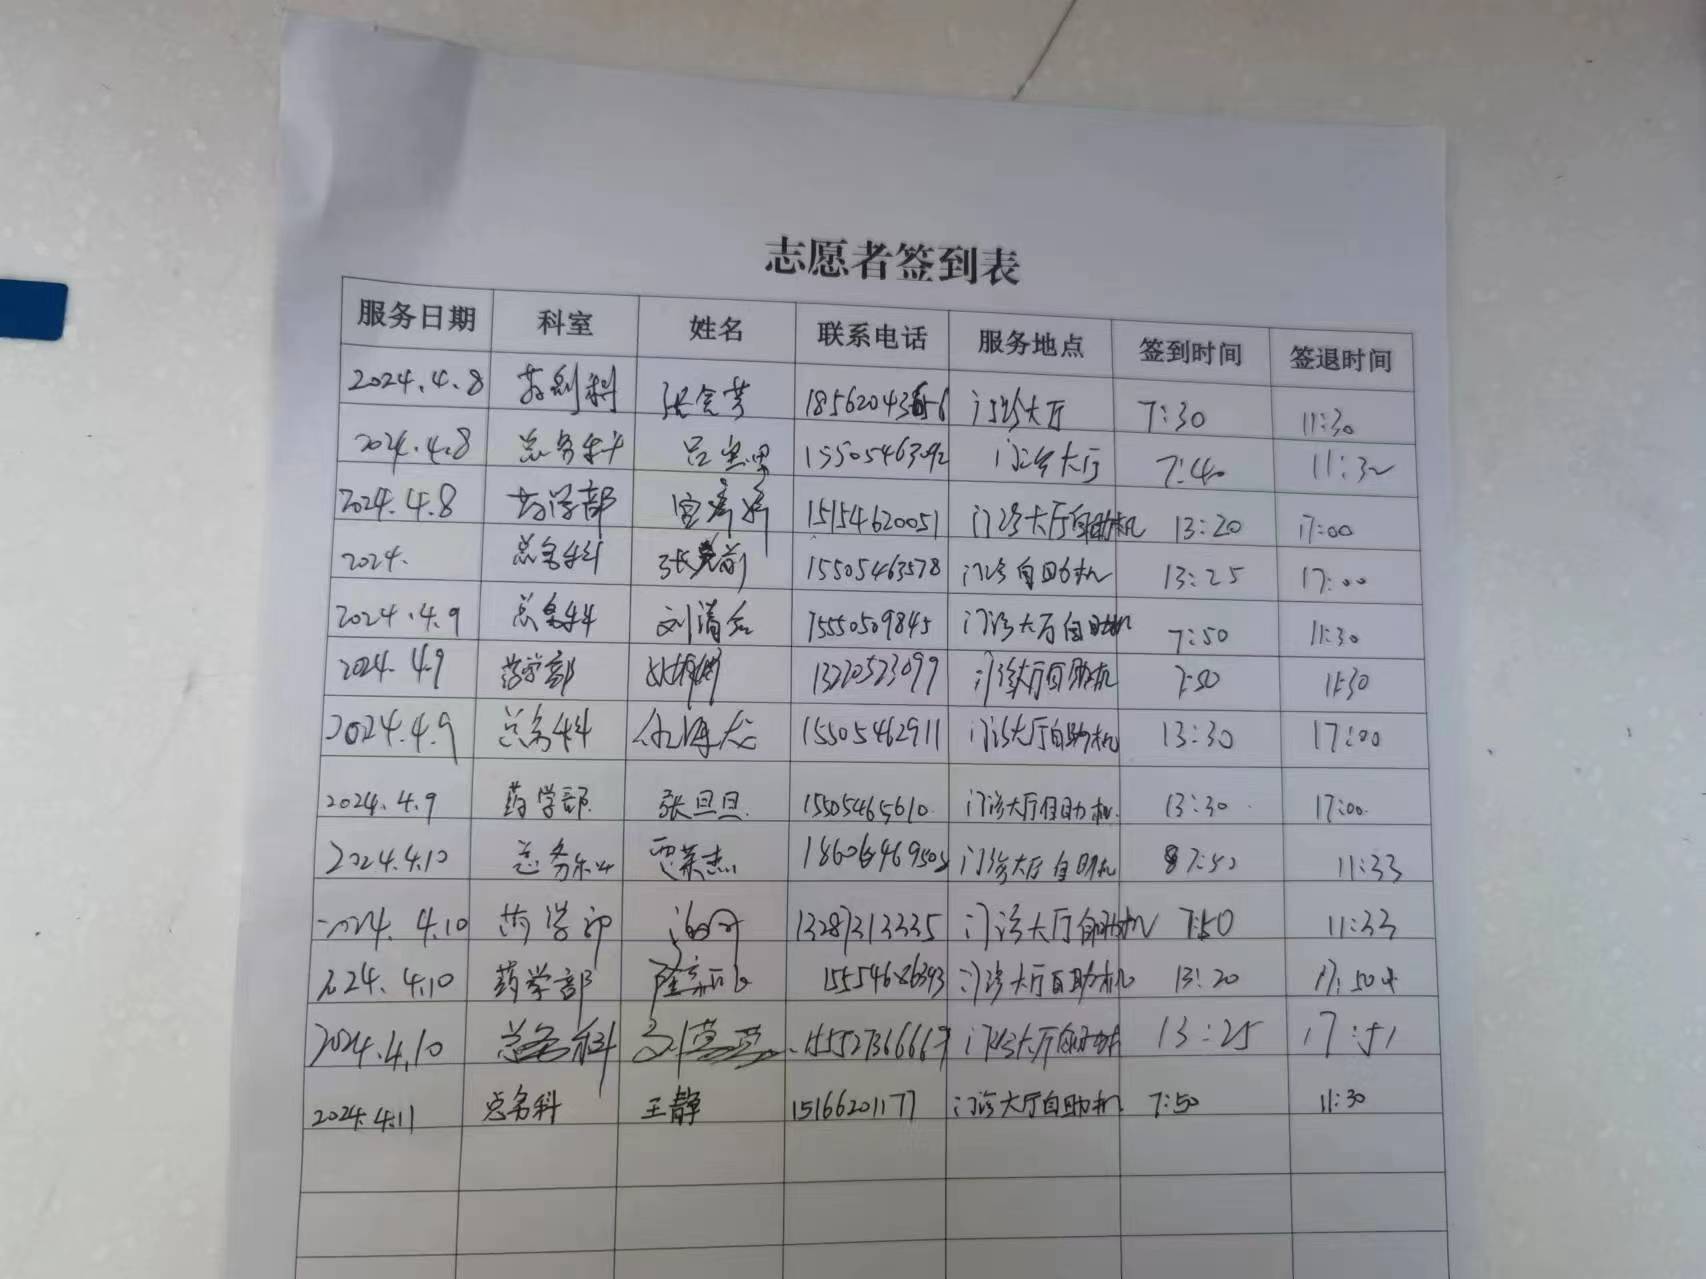 志愿者签到表
服务日期 科室 姓名 联系电话 服务地点 签到时间 签退时间
2024.4.8 药剂科 门诊大厅 7:30 11:30
2024.4.8 总务科 15505463092 门诊大厅 7:40 11:32
2024.4.8 药学部 15154620051 门诊大厅自助机 13:20 17:00
2024. 总务科 15505463578 门诊自助机 13:25 17:00
2024.4.9 总务科 15550509845 门诊大厅自助机 7:50 11:30
2024.4.9 药学部 13220523099 门诊大厅自助机 7:50 11:30
2024.4.9 总务科 15505462911 门诊大厅自助机 13:30 17:00
2024.4.9 药学部 张旦旦 15505465610 门诊大厅自助机 13:30 17:00
2024.4.10 总务科 贾荣杰 门诊大厅自助机 7:50 11:33
2024.4.10 药学部 13287313335 门诊大厅自助机 7:50 11:33
2024.4.10 药学部 15554686393 门诊大厅自助机 13:20
2024.4.10 总务科 门诊大厅自助机 13:25 17:51
2024.4.11 总务科 王静 15166201177 门诊大厅自助机 7:50 11:30